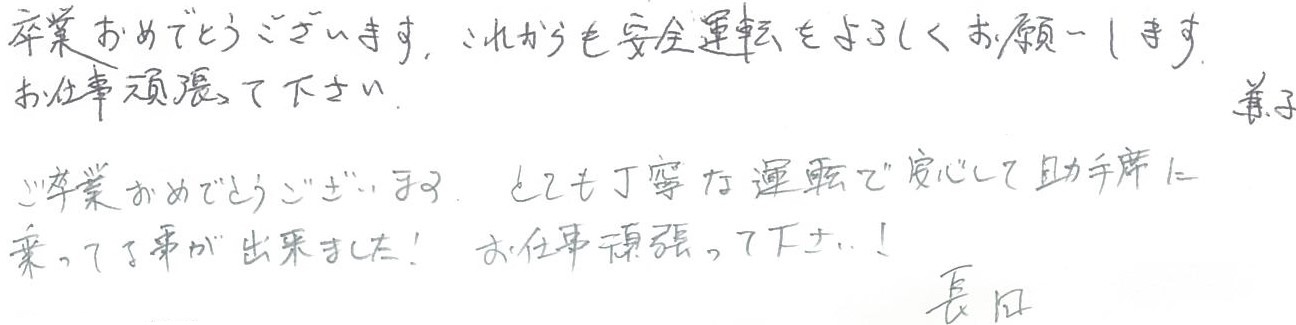 卒業おめでとうございます。これからも安全運転をよろしくお願いします。
お仕事頑張って下さい。
ご卒業おめでとうございます。とても丁寧な運転で安心して助手席に
乗ってる事が出来ました！お仕事頑張って下さい！
長田